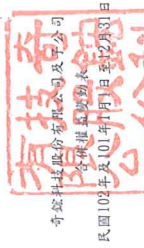 奇鋐科技股份有限公司及子公司
合併權益變動表
民國102年及101年1月1日至12月31日